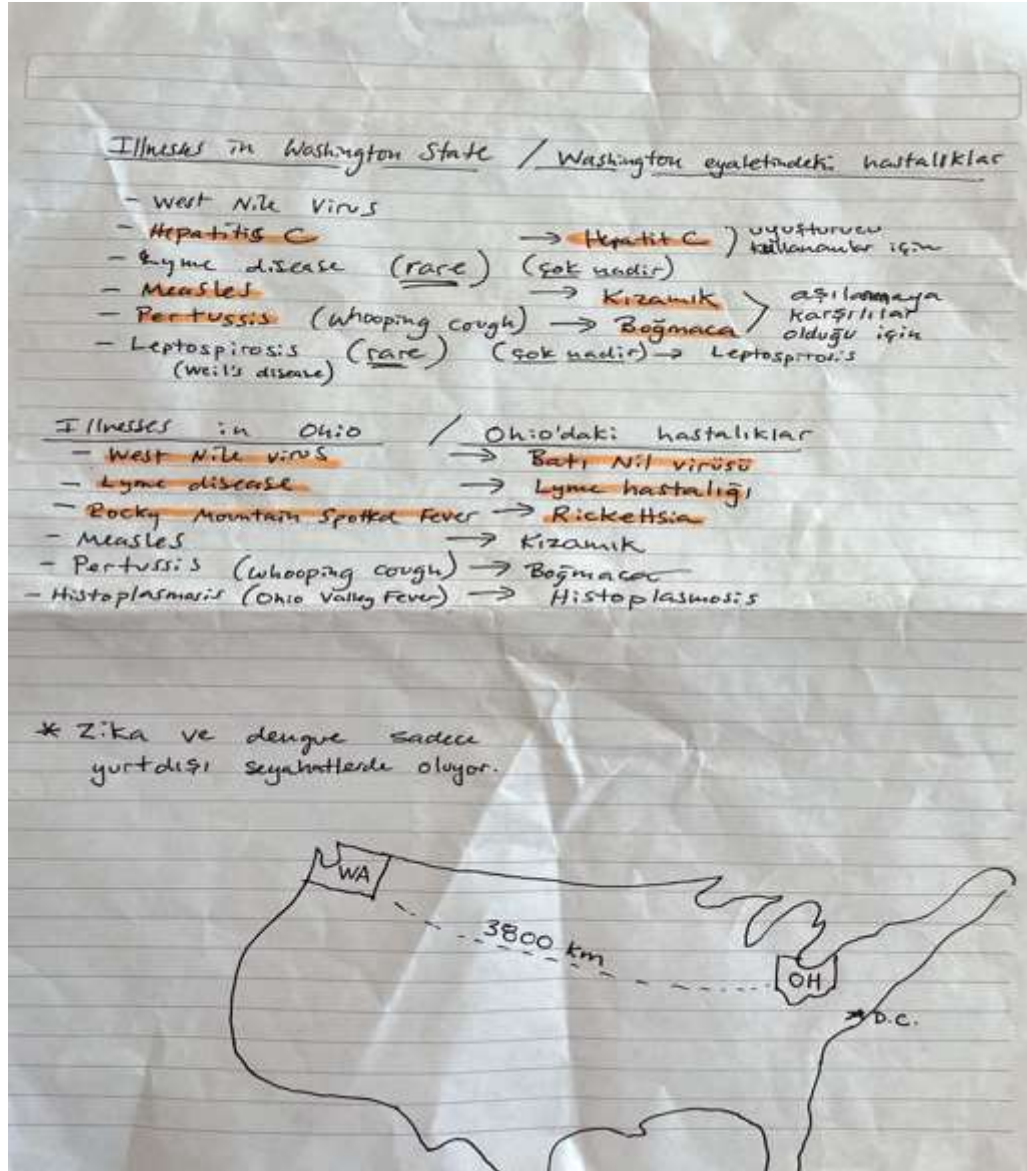 Illnesses in Washington State / Washington eyaletindeki hastalıklar
- West Nile Virus
- Hepatitis C → Hepatit C ) uyuşturucu kullananlar için
- Lyme disease (rare) (çok nadir)
- Measles → Kızamık
- Pertussis (whooping cough) → Boğmaca
aşılanmaya
karşılılar
olduğu için
- Leptospirosis (rare) (çok nadir) → Leptospirosis
(Weil's disease)
Illnesses in Ohio / Ohio'daki hastalıklar
- West Nile virus → Batı Nil virüsü
- Lyme disease → Lyme hastalığı
- Rocky Mountain Spotted Fever → Rickettsia
- Measles → Kızamık
- Pertussis (whooping cough) → Boğmaca
- Histoplasmosis (Ohio Valley Fever) → Histoplasmosis
* Zika ve dengue sadece
yurtdışı seyahatlerde oluyor.
WA
3800 km
OH
D.C.